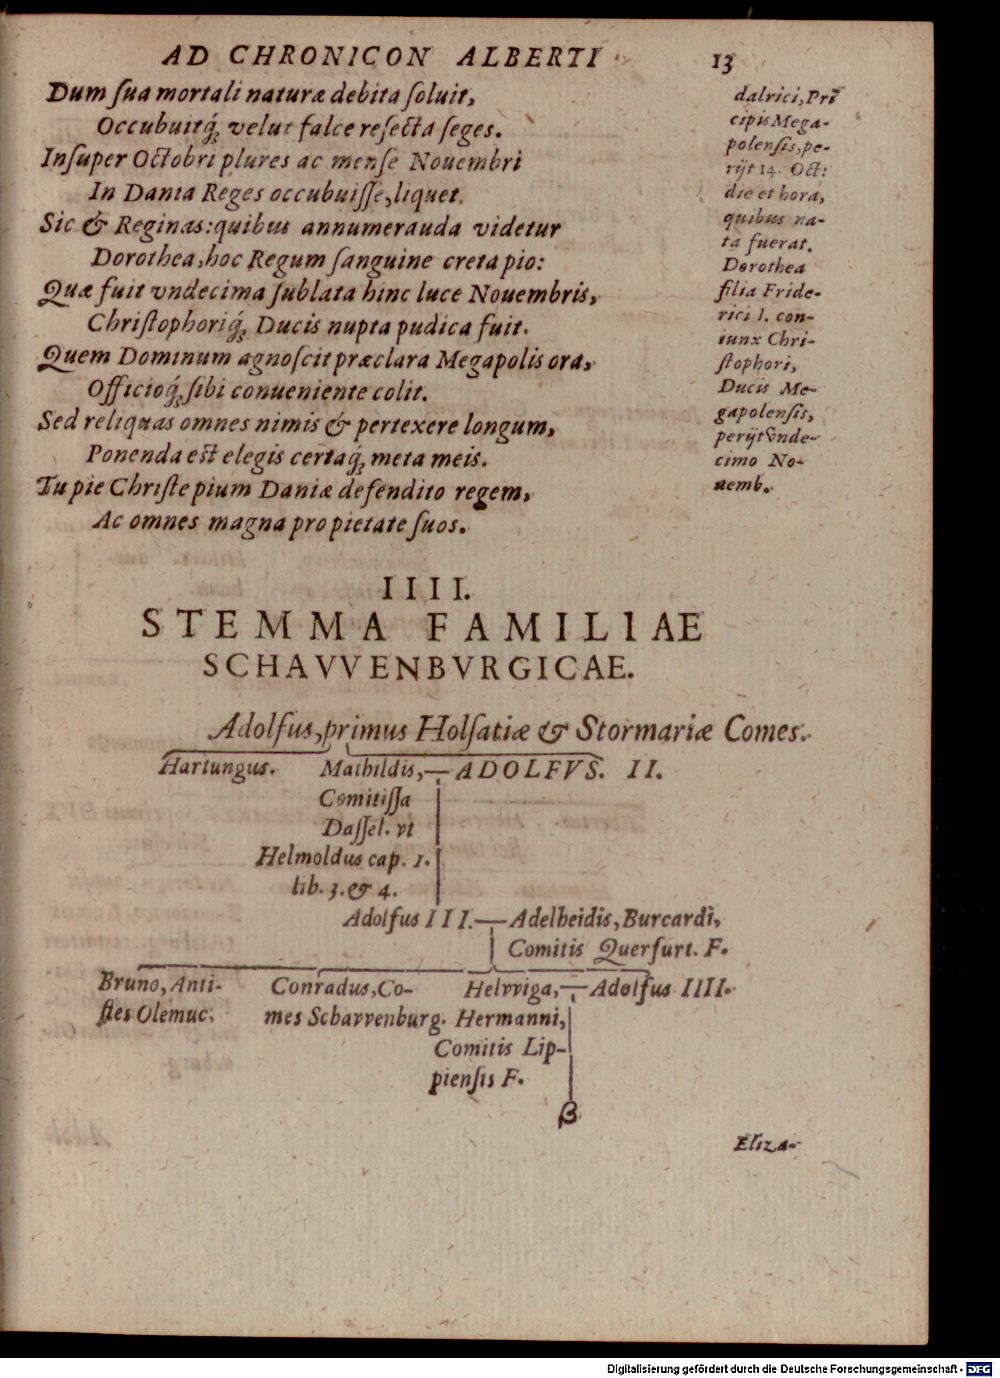 AD CHRONICON ALBERTI 13
Dum ſua mortali naturæ debita ſoluit,
Occubuitq́; velut falce reſecta ſeges.
Inſuper Octobri plures ac menſe Nouembri
In Dania Reges occubuiſſe, liquet.
Sic & Reginas: quibus annumerauda videtur
Dorothea, hoc Regum ſanguine creta pio:
Quæ fuit vndecima ſublata hinc luce Nouembris,
Chriſtophoriq́; Ducis nupta pudica fuit.
Quem Dominum agnoſcit præclara Megapolis ora,
Officioq́; ſibi conueniente colit.
Sed reliquas omnes nimis & pertexere longum,
Ponenda eſt elegis certaq́; meta meis.
Tu pie Chriſte pium Daniæ defendito regem,
Ac omnes magna pro pietate ſuos.
dalrici, Prī
cipis Mega-
polenſis, pe-
rijt 14. Oct:
die et hora,
quibus na-
ta fuerat.
Dorothea
filia Fride-
rici I. con-
iunx Chri-
ſtophori,
Ducis Me-
gapolenſis,
perijt vnde-
cimo No-
uemb.
IIII.
STEMMA FAMILIAE
SCHAVVENBVRGICAE.
Adolfus, primus Holſatiæ & Stormariæ Comes.
Hartungus. Mathildis, — ADOLFVS. II.
Comitiſſa
Daſſel. vt
Helmoldus cap. 1.
lib. 3. & 4.
Adolfus III. — Adelheidis, Burcardi,
Comitis Querfurt. F.
Bruno, Anti- Conradus, Co- Helvviga, — Adolfus IIII.
ſtes Olemuc. mes Schavvenburg. Hermanni,
Comitis Lip-
pienſis F.
β
Eliza-
Digitalisierung gefördert durch die Deutsche Forschungsgemeinschaft - DFG